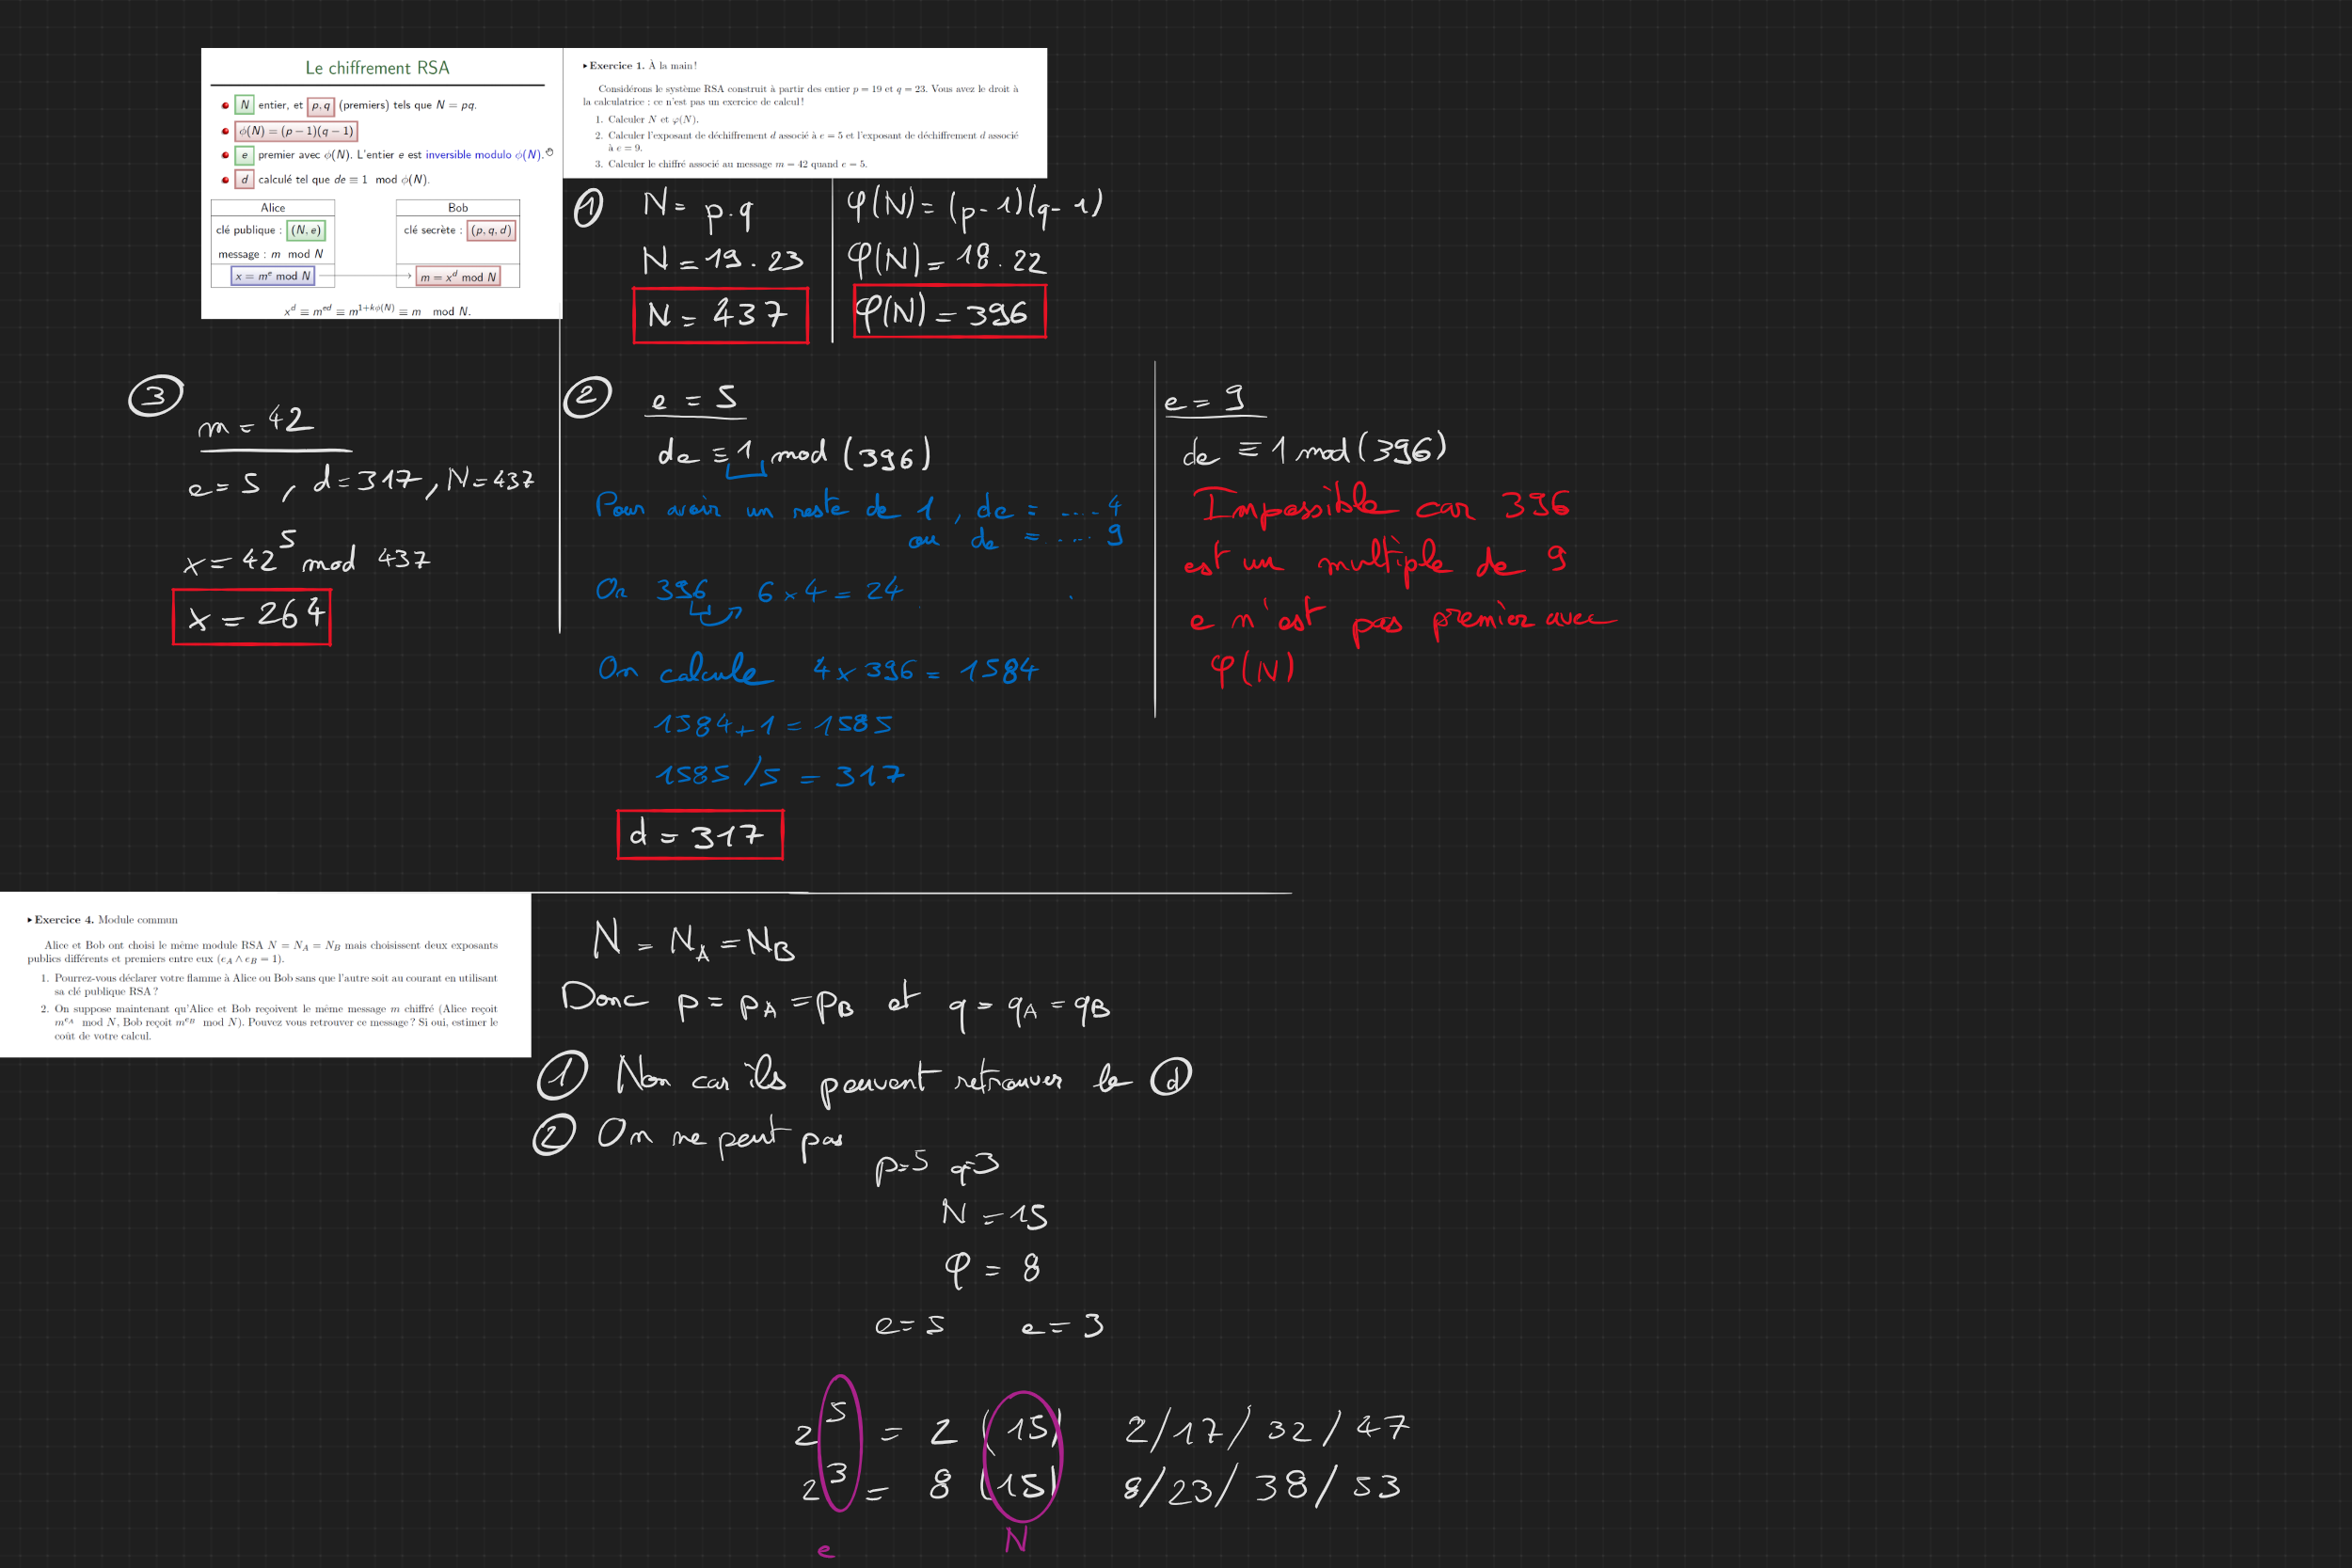 Le chiffrement RSA
N entier, et p, q (premiers) tels que N = pq.
ϕ(N) = (p − 1)(q − 1)
e premier avec ϕ(N). L'entier e est inversible modulo ϕ(N).
d calculé tel que de ≡ 1 mod ϕ(N).
Alice
clé publique : (N, e)
message : m mod N
x = m^e mod N
Bob
clé secrète : (p, q, d)
m = x^d mod N
x^d ≡ m^ed ≡ m^1+kϕ(N) ≡ m mod N.
▸ Exercice 1. À la main !
Considérons le système RSA construit à partir des entier p = 19 et q = 23. Vous avez le droit à
la calculatrice : ce n'est pas un exercice de calcul !
1. Calculer N et φ(N).
2. Calculer l'exposant de déchiffrement d associé à e = 5 et l'exposant de déchiffrement d associé
à e = 9.
3. Calculer le chiffré associé au message m = 42 quand e = 5.
① N = p.q
N = 19 . 23
N = 437
φ(N) = (p-1)(q-1)
φ(N) = 18 . 22
φ(N) = 396
③ m = 42
e = 5 , d = 317 , N = 437
x = 42^5 mod 437
x = 264
② e = 5
de ≡ 1 mod (396)
Pour avoir un reste de 1 , de = ....4
ou de = .... 9
Or 396 6 × 4 = 24
On calcule 4 × 396 = 1584
1584 + 1 = 1585
1585 / 5 = 317
d = 317
e = 9
de ≡ 1 mod (396)
Impossible car 396
est un multiple de 9
e n'est pas premier avec
φ(N)
▸ Exercice 4. Module commun
Alice et Bob ont choisi le même module RSA N = N_A = N_B mais choisissent deux exposants
publics différents et premiers entre eux (e_A ∧ e_B = 1).
1. Pourrez-vous déclarer votre flamme à Alice ou Bob sans que l'autre soit au courant en utilisant
sa clé publique RSA ?
2. On suppose maintenant qu'Alice et Bob reçoivent le même message m chiffré (Alice reçoit
m^e_A mod N, Bob reçoit m^e_B mod N). Pouvez vous retrouver ce message ? Si oui, estimer le
coût de votre calcul.
N = N_A = N_B
Donc p = p_A = p_B et q = q_A = q_B
① Non car ils peuvent retrouver le d
② On ne peut pas
p=5 q=3
N = 15
φ = 8
e = 5 e = 3
2^5 = 2 (15) 2/17/32/47
2^3 = 8 (15) 8/23/38/53
e N